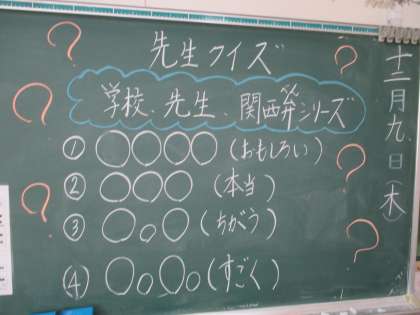 先生クイズ
学校、先生、関西弁シリーズ
べん
① ○○○○ (おもしろい)
② ○○○ (本当)
③ ○o○ (ちがう)
④ ○o○o (すごく)
十二月九日(木)